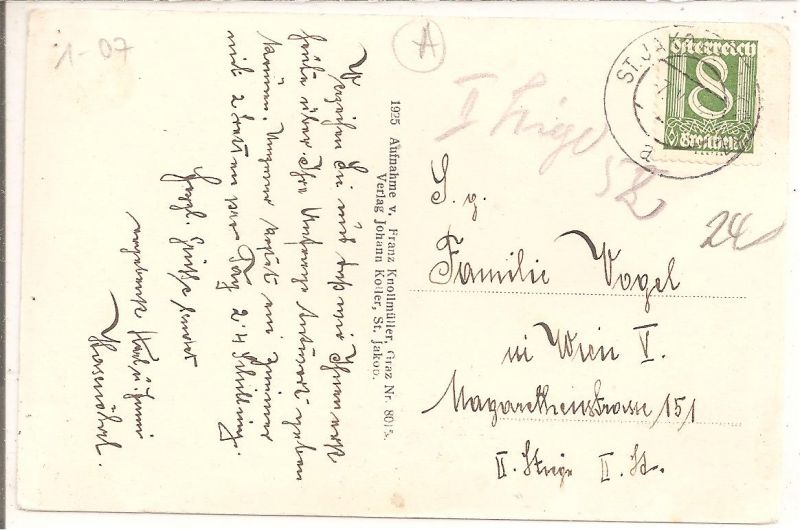 1-07
Verzeihen Sie uns daß wir Ihnen erst
heute über Ihre Anfrage Antwort geben
können. Unserer kostet ein Zimmer
mit 2 Betten pro Tag 2·4 Schilling.
Herzl. Grüße sendet
ergebenst
A
1925 Aufnahme v. Franz Knollmüller, Graz Nr. 8015.
Verlag Johann Koller, St. Jakob.
ST. JAKO
a
Österreich
8
Groschen
I Stiege
24
S. g.
Familie Vogel
in Wien V.
Magarethenstrasse 151
II. Stiege II. St.